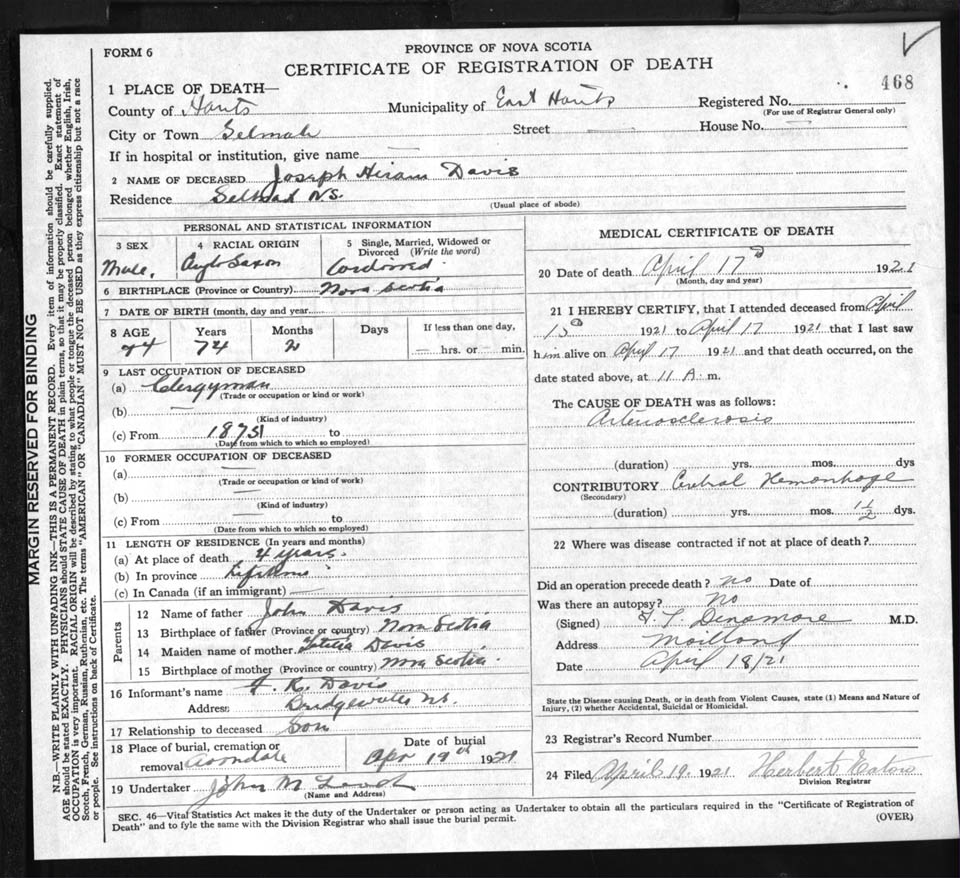 FORM 6
PROVINCE OF NOVA SCOTIA
CERTIFICATE OF REGISTRATION OF DEATH
468
1 PLACE OF DEATH—
County of Hants Municipality of East Hants Registered No.
(For use of Registrar General only)
City or Town Selmah Street — House No. —
If in hospital or institution, give name —
2 NAME OF DECEASED Joseph Hiram Davis
Residence Selmah N.S.
(Usual place of abode)
PERSONAL AND STATISTICAL INFORMATION
3 SEX
Male.
4 RACIAL ORIGIN
Anglo Saxon
5 Single, Married, Widowed or Divorced (Write the word)
6 BIRTHPLACE (Province or Country) Nova Scotia
7 DATE OF BIRTH (month, day and year
8 AGE Years Months Days If less than one day,
74 74 2 — hrs. or — min.
9 LAST OCCUPATION OF DECEASED
(a) Clergyman
(Trade or occupation or kind or work)
(b) —
(Kind of industry)
(c) From to
(Date from which to which so employed)
10 FORMER OCCUPATION OF DECEASED
(a) —
(Trade or occupation or kind of work)
(b) —
(Kind of industry)
(c) From — to
(Date from which to which so employed)
11 LENGTH OF RESIDENCE (In years and months)
(a) At place of death 4 years.
(b) In province Lifetime
(c) In Canada (if an immigrant) —
Parents
12 Name of father John Davis
13 Birthplace of father (Province or country) Nova Scotia
14 Maiden name of mother Letitia Davis
15 Birthplace of mother (Province or country) Nova Scotia.
16 Informant's name R. Davis
Address Bridgewater N.S.
17 Relationship to deceased Son
18 Place of burial, cremation or removal Avondale
Date of burial
Apr 19th 1921
19 Undertaker John M
(Name and Address)
MEDICAL CERTIFICATE OF DEATH
20 Date of death April 17th 1921
(Month, day and year)
21 I HEREBY CERTIFY, that I attended deceased from April
15th 1921 to April 17 1921 that I last saw
him alive on April 17 1921 and that death occurred, on the
date stated above, at 11 A. m.
The CAUSE OF DEATH was as follows:
Arteriosclerosis
(duration) yrs. mos. dys
CONTRIBUTORY Cerebral Hemorrhage
(Secondary)
(duration) yrs. mos. 1½ dys.
22 Where was disease contracted if not at place of death?
Did an operation precede death? no Date of
Was there an autopsy? no
(Signed) Dinsmore M.D.
Address Maitland
Date April 18/21
State the Disease causing Death, or in death from Violent Causes, state (1) Means and Nature of
Injury, (2) whether Accidental, Suicidal or Homicidal.
23 Registrar's Record Number
24 Filed April 19. 1921 Herbert Eaton
Division Registrar
SEC. 46—Vital Statistics Act makes it the duty of the Undertaker or person acting as Undertaker to obtain all the particulars required in the "Certificate of Registration of
Death" and to fyle the same with the Division Registrar who shall issue the burial permit. (OVER)
MARGIN RESERVED FOR BINDING
N.B.—WRITE PLAINLY WITH UNFADING INK—THIS IS A PERMANENT RECORD. Every item of information should be carefully supplied.
AGE should be stated EXACTLY. PHYSICIANS should STATE CAUSE OF DEATH in plain terms, so that it may be properly classified. Exact statement of
OCCUPATION is very important. RACIAL ORIGIN will be described by stating to what people or tongue the deceased person belonged whether English, Irish,
Scotch, French, German, Russian, Ruthenian, etc. The terms "AMERICAN" OR "CANADIAN" MUST NOT BE USED as they express citizenship but not a race
or people. See instructions on back of Certificate.